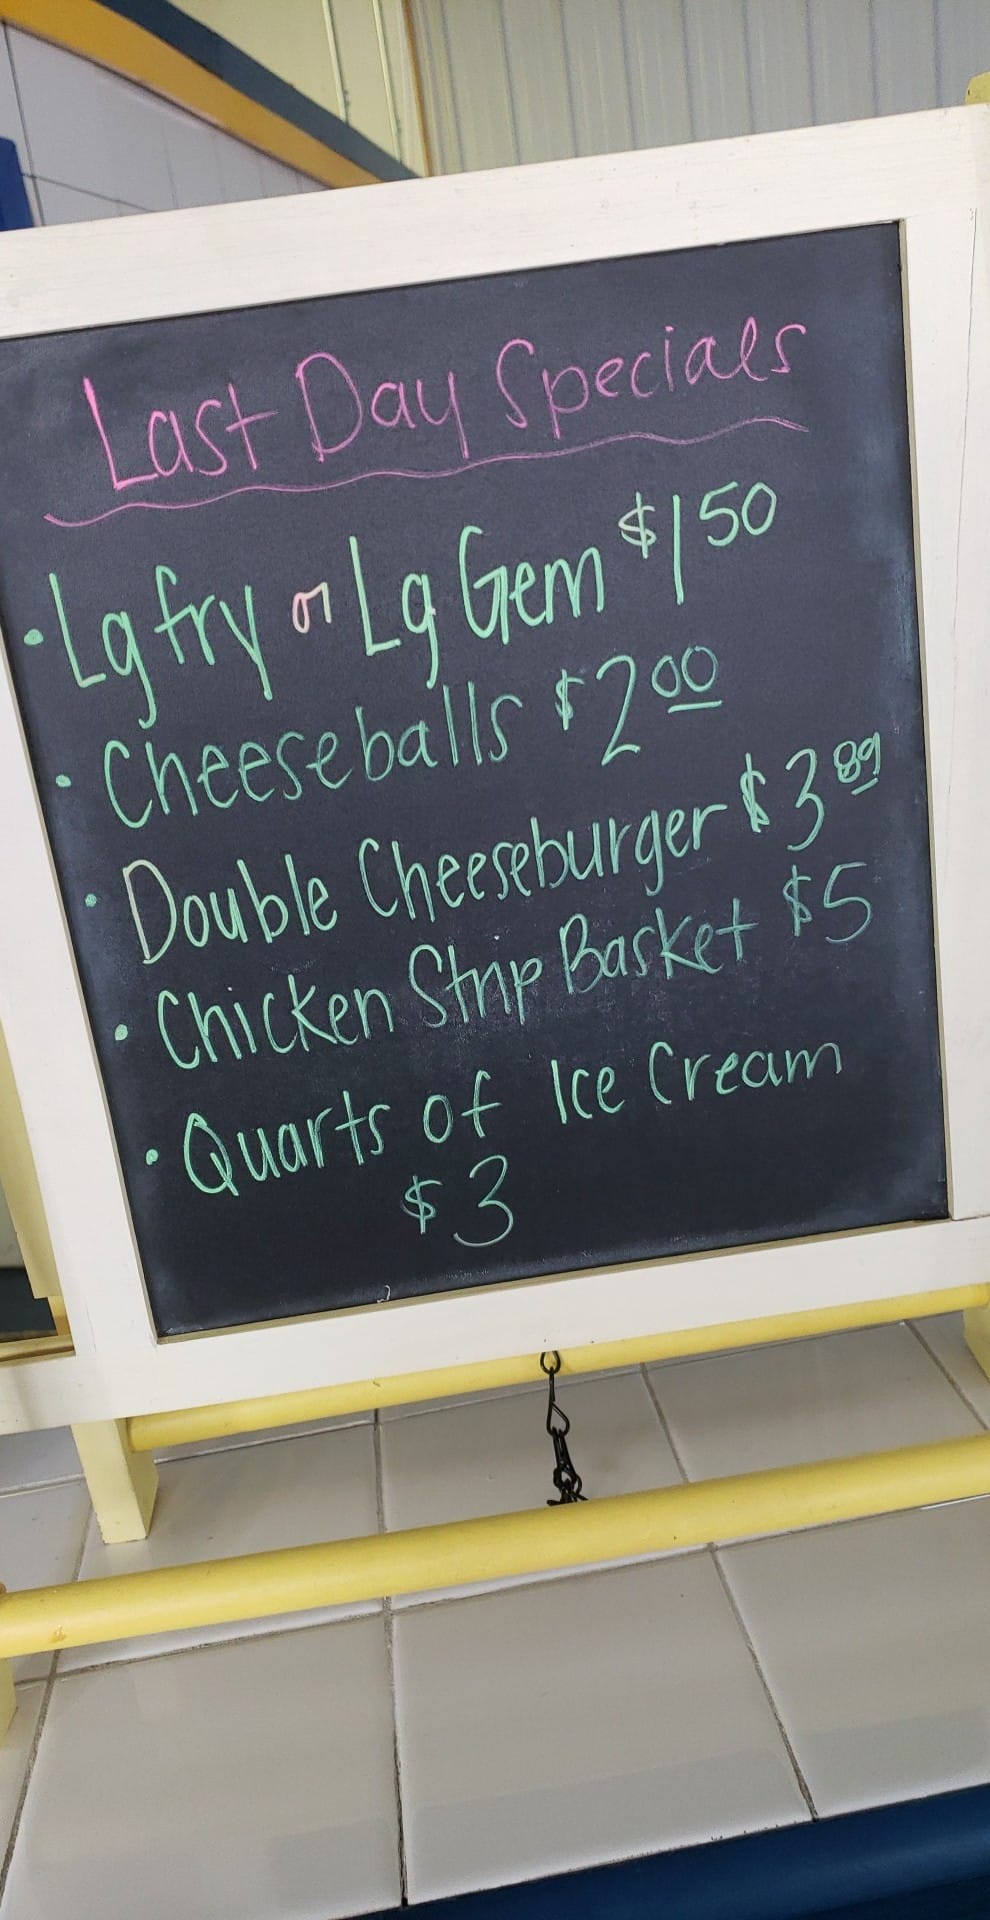 Last Day Specials
• Lg fry or Lg Gem $1 50
• Cheeseballs $2 00
• Double Cheeseburger $3 89
• Chicken Strip Basket $5
• Quarts of Ice Cream
$3